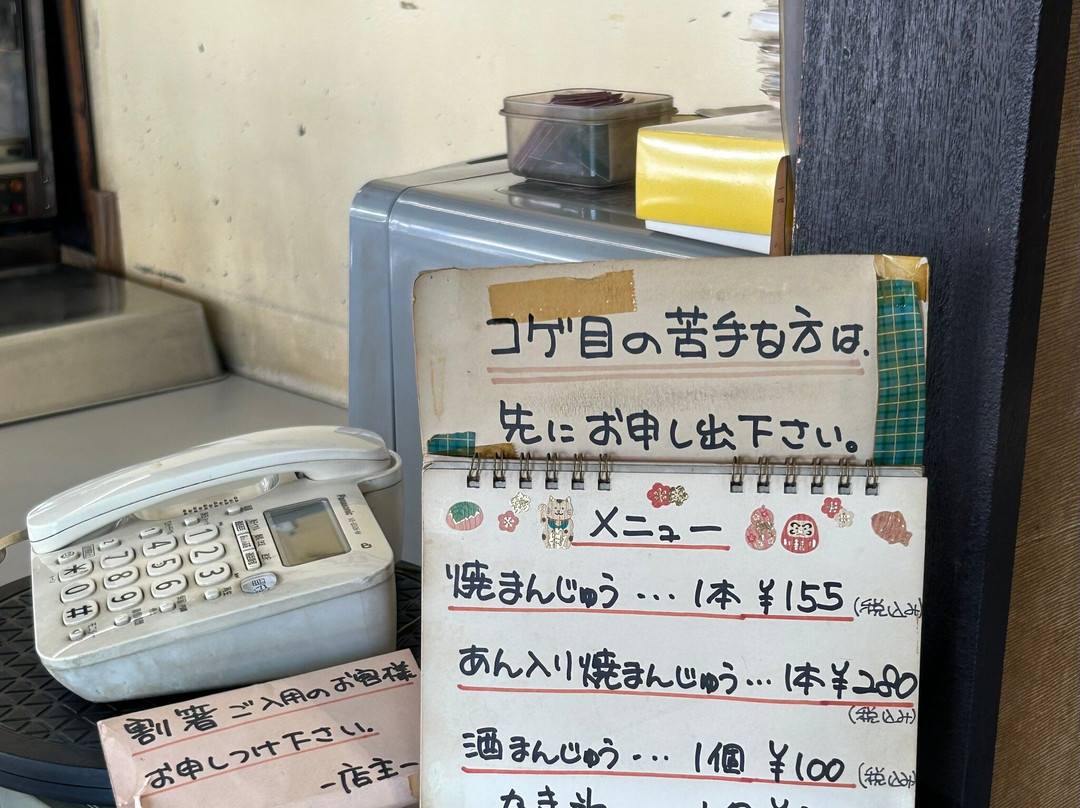 コゲ目の苦手な方は、
先にお申し出下さい。
メニュー
焼まんじゅう・・・1本 ¥155(税込み)
あん入り焼まんじゅう・・・1本¥280
(税込み)
酒まんじゅう・・・1個 ¥100(税込み)
割箸ご入用のお客様
お申しつけ下さい。
-店主-
Panasonic
1
2
3
4
5
6
7
8
9
*
0
#